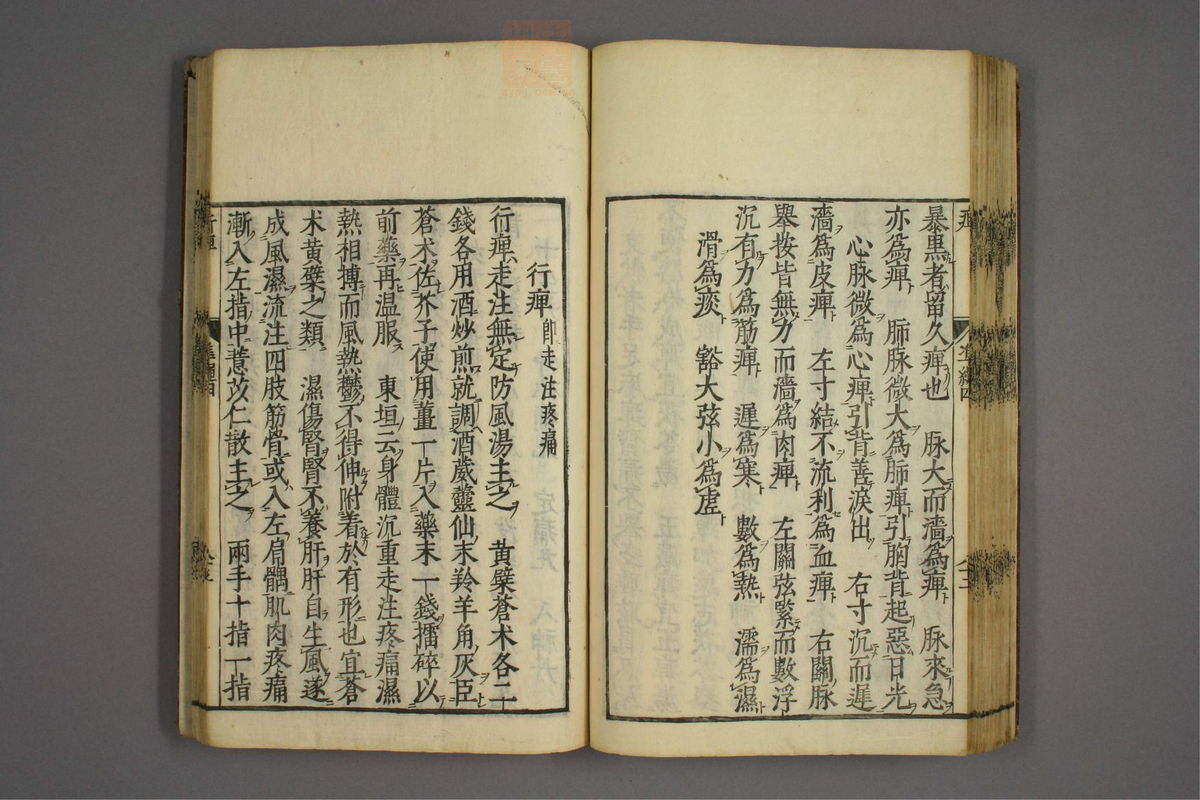 暴患者留久痺也　脉大而濇為痺　脉來急
亦為痺　肺脉微大為肺痺引胸背起惡日光
心脉微為心痺引背善淚出　右寸沉而遲
濇為皮痺　左寸結不流利為血痺　右關脉
舉按皆無力而濇為肉痺　左關弦緊而數浮
沉有力為筋痺　遲為寒　數為熱　濡為濕
滑為痰　豁大弦小為虛
行痺 卽走注疼痛
行痺走注無定防風湯主之　黃檗蒼术各二
錢各用酒炒煎就調酒葳靈仙末羚羊角灰臣
蒼术佐芥子使用薑一片入藥末一錢擂碎以
前藥再温服　東垣云身體沉重走注疼痛濕
熱相搏而風熱鬱不得伸附着於有形也宜蒼
术黃檗之類　濕傷腎腎不養肝肝自生風遂
成風濕流注四肢筋骨或入左肩髃肌肉疼痛
漸入左指中薏苡仁散主之　兩手十指一指